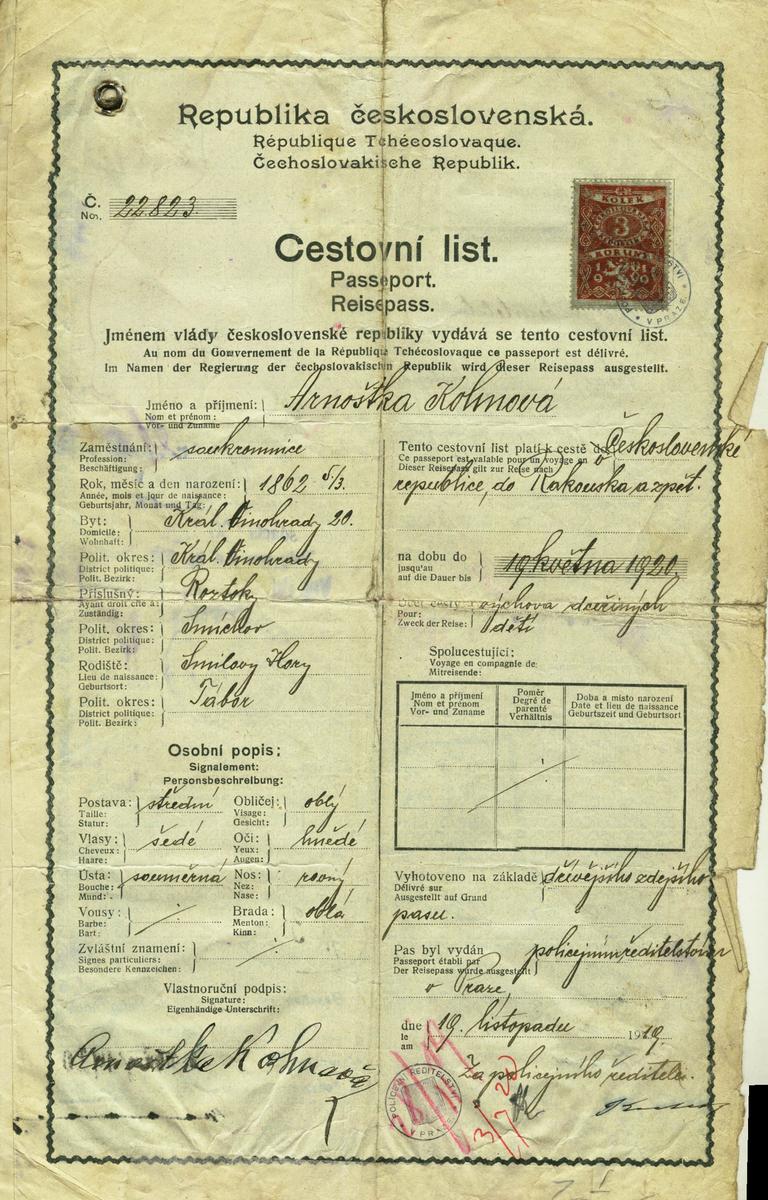 Republika československá.
République Tchécoslovaque.
Čechoslovakische Republik.
Č. 22.823.
No.
KOLEK
3
KORUNY
1919
Cestovní list.
Passeport.
Reisepass.
Jménem vlády československé republiky vydává se tento cestovní list.
Au nom du Gouvernement de la République Tchécoslovaque ce passeport est délivré.
Im Namen der Regierung der čechoslovakischen Republik wird dieser Reisepass ausgestellt.
Jméno a příjmení: Arnoštka Kohnová
Nom et prénom:
Vor- und Zuname
Zaměstnání: soukromnice
Profession:
Beschäftigung:
Rok, měsíc a den narození: 1862 5/3.
Année, mois et jour de naissance:
Geburtsjahr, Monat und Tag:
Byt: Král. Vinohrady 20.
Domicile:
Wohnhaft:
Polit. okres: Král. Vinohrady
District politique:
Polit. Bezirk:
Příslušný: Roztoky
Ayant droit cité à:
Zuständig:
Polit. okres: Smíchov
District politique:
Polit. Bezirk:
Rodiště: Smilovy Hory
Lieu de naissance:
Geburtsort:
Polit. okres: Tábor
District politique:
Polit. Bezirk:
Osobní popis:
Signalement:
Personsbeschreibung:
Postava: střední Obličej: oblý
Taille: Visage:
Statur: Gesicht:
Vlasy: šedé Oči: hnědé
Cheveux: Yeux:
Haare: Augen:
Ústa: souměrná Nos: rovný
Bouche: Nez:
Mund: Nase:
Vousy: ∕ Brada: oblá
Barbe: Menton:
Bart: Kinn:
Zvláštní znamení: ∕
Signes particuliers:
Besondere Kennzeichen:
Vlastnoruční podpis:
Signature:
Eigenhändige Unterschrift:
Arnoštka Kohnová
Tento cestovní list platí k cestě do v Československé
Ce passeport est valable pour un voyage en
Dieser Reisepass gilt zur Reise nach
republice, do Rakouska a zpět.
na dobu do 19 května 1920
jusqu'au
auf die Dauer bis
Účel cesty: výchova dceřiných
Pour: dětí
Zweck der Reise:
Spolucestující:
Voyage en compagnie de:
Mitreisende:
Jméno a příjmení Poměr Doba a místo narození
Nom et prénom Degré de parenté Date et lieu de naissance
Vor- und Zuname Verhältnis Geburtszeit und Geburtsort
Vyhotoveno na základě dřívějšího zdejšího
Délivré sur
Ausgestellt auf Grund
pasu.
Pas byl vydán policejním ředitelstvím
Passeport établi par
Der Reisepass wurde ausgestellt
v Praze,
dne 19. listopadu 1919.
le
am
Za policejního ředitele:
POLICEJNÍ ŘEDITELSTVÍ
V PRAZE
3/7 20